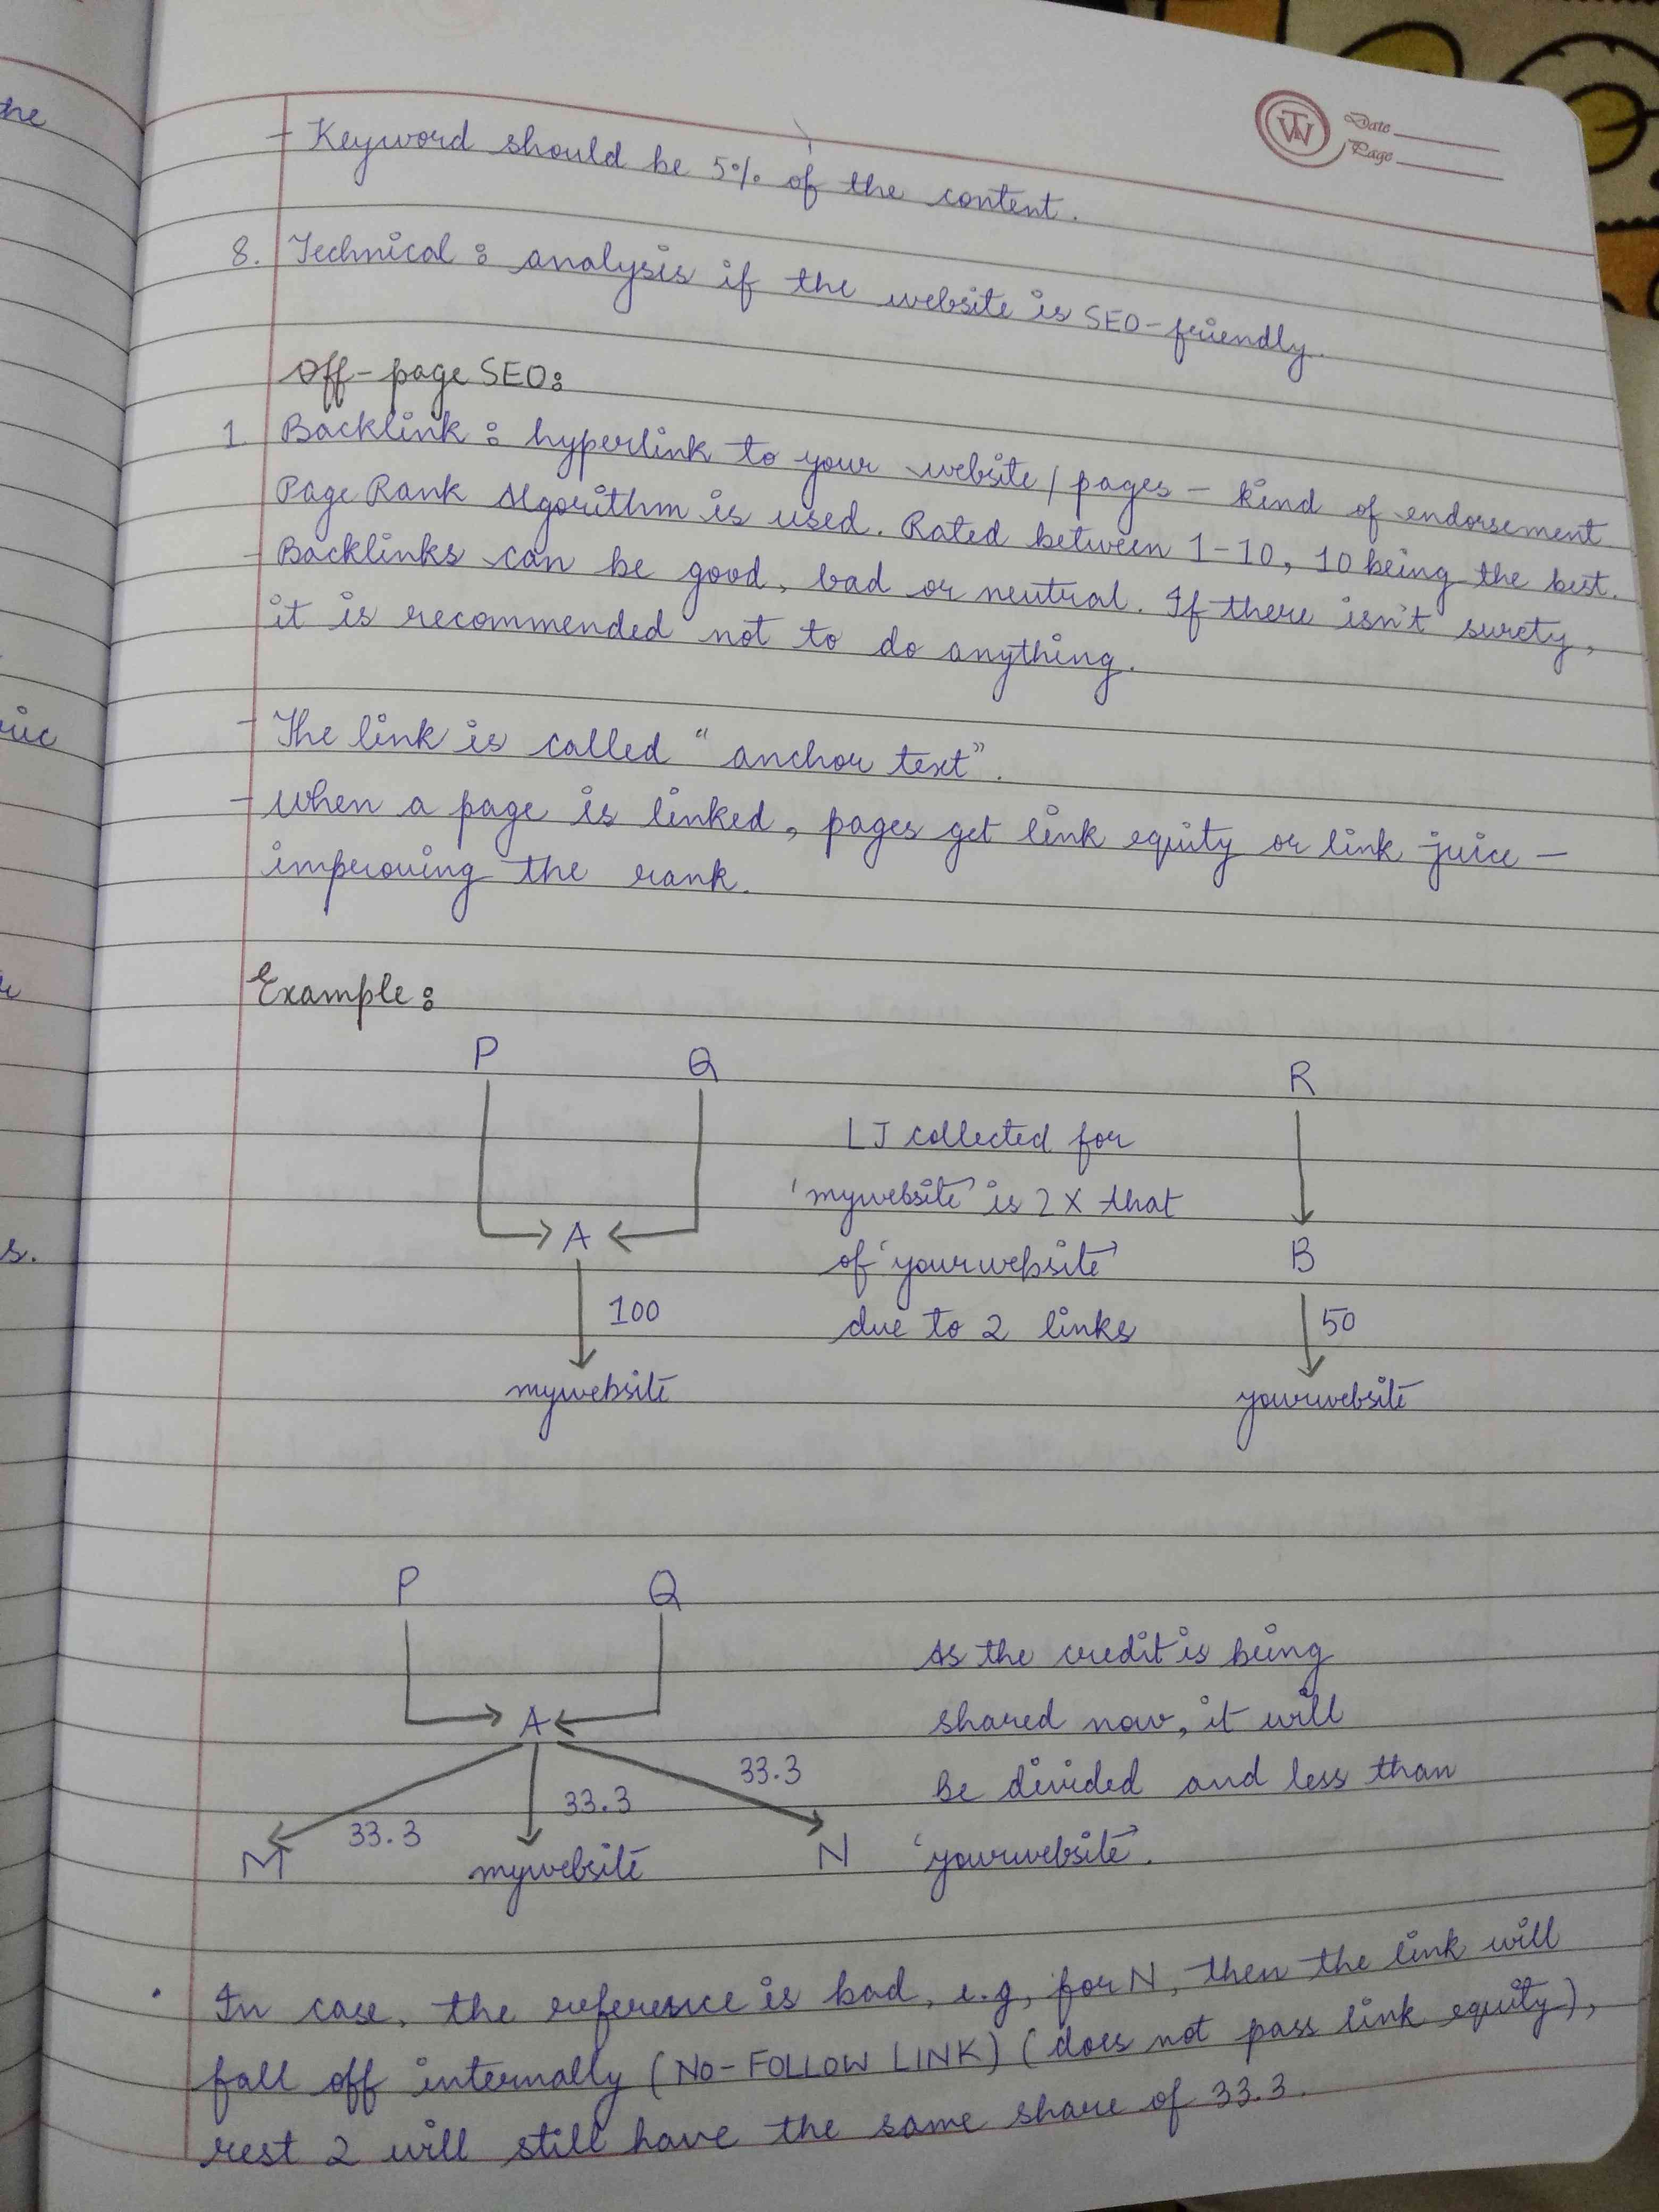 Date
Page
he
- Keyword should be 5% of the content.
8. Technical : analysis if the website is SEO-friendly.
Off-page SEO:
1. Backlink : hyperlink to your website / pages - kind of endorsement
Page Rank Algorithm is used. Rated between 1-10, 10 being the best.
- Backlinks can be good, bad or neutral. If there isn't surety,
it is recommended not to do anything.
- The link is called "anchor text".
- When a page is linked, pages get link equity or link juice -
improving the rank.
Example :
P Q R
LJ collected for
'mywebsite' is 2 X that
A of 'yourwebsite' B
100 due to 2 links 50
mywebsite yourwebsite
P Q
As the credit is being
A shared now, it will
33.3 33.3 33.3 be divided and less than
M mywebsite N 'yourwebsite'.
• In case, the reference is bad, e.g, for N, then the link will
fall off internally (NO-FOLLOW LINK) (does not pass link equity),
rest 2 will still have the same share of 33.3.